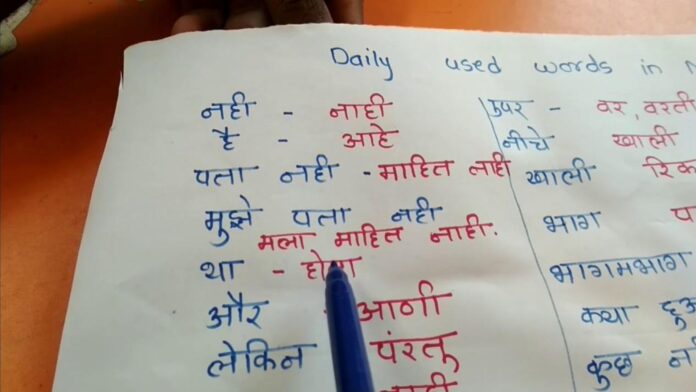 Daily used words in
नही - नाही
है - आहे
पता नही - माहित नाही
मुझे पता नही
मला माहित नाही.
था -
और - आणी
लेकिन परंतू
उपर - वर, वरती
नीचे खाली
खाली
भाग
भागमभाग
क्या
कुछ